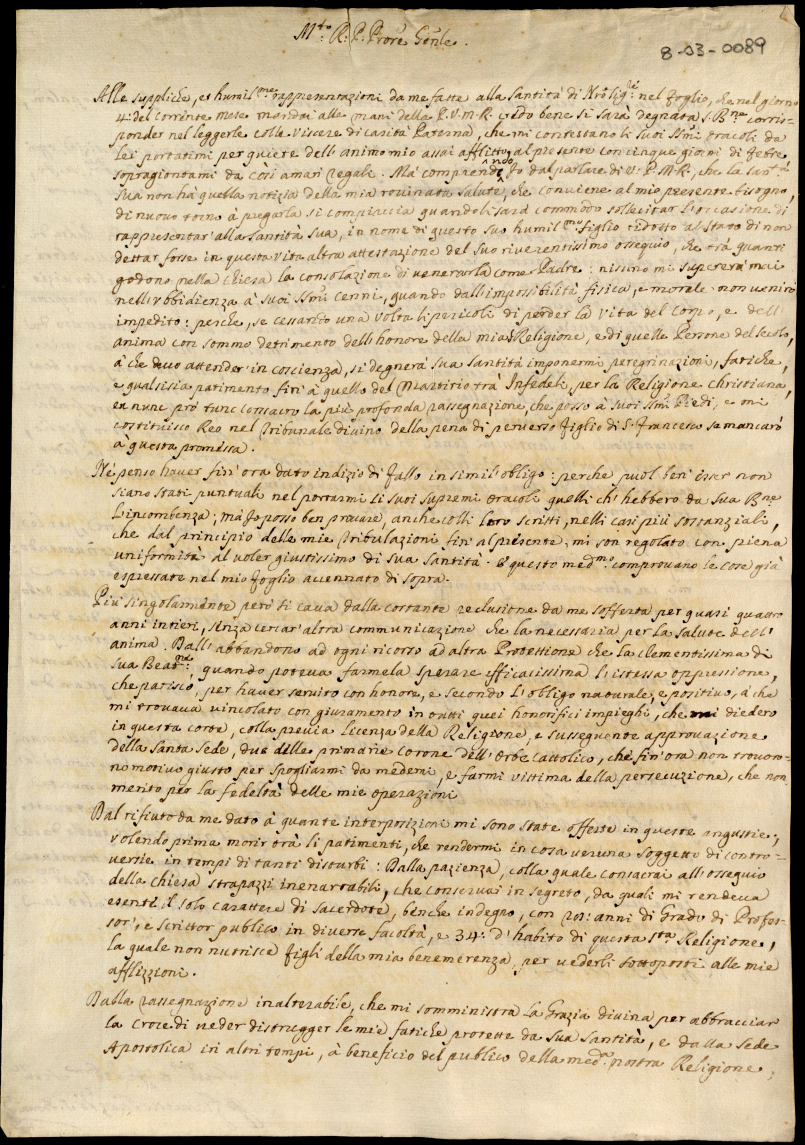 M.to R: P: Prore Gnle.
8-03-0089
Alle suppliche, et humil.me rappresentazioni da me fatte alla Santità di Nro Sig.re nel foglio, che nel giorno
4: del corrente mese mandai alle mani della P.V.M.R. credo bene si sarà degnata S. B.ne corris-
ponder nel leggerle colle viscere di carità Paterna, che mi contestano li suoi Ssmi oracoli da
lei portatimi per quiete dell'animo mio assai afflitto al presente con cinque giorni di febre
sopragiontami da così amari regali. Mà comprendendo Io dal parlare di V: P.M.R., che la San.tà
Sua non hà quella notizia della mia rovinata salute, che conviene al mio presente bisogno,
di nuovo torno à pregarla si compiaccia quando li sarà commodo sollecitar l'occasione di
rappresentar' alla Santità Sua, in nome di questo suo humil.mo figlio ridotto à stato di non
dettar forse in questa vita altra attestazione del suo riverentissimo ossequio, che trà quanti
godono nella chiesa la consolazione di venerarla come Padre: nisuno mi supererà mai
nell'ubbidienza à suoi Ssmi cenni, quando dall'impossibilità fisica, e morale non venirò
impedito: perche, se cessando una volta li pericoli di perder la vita del Corpo, e dell'
anima con sommo detrimento dell'honore della mia Religione, e di quelle Persone del secolo,
à che devo attender' in coscienza, si degnerà sua Santità impormi peregrinazioni, fatiche,
e qualsisia patimento fin' à quello del Martirio trà Infedeli, per la Religione christiana,
ex nunc pro tunc consacro la più profonda rassegnazione, che posso à suoi Ssmi Piedi, e mi
costituisco Reo nel Tribunale divino della pena di perverso figlio di S. Francesco se mancarò
à questa promessa.
Nè penso haver fin' ora dato indizio di fallo in simil' obligo: perche puol ben' esser non
siano stati puntuali nel portarmi li suoi supremi oracoli quelli ch' hebbero da Sua B.ne
l'incombenza; mà Io posso ben provare, anche colli loro scritti, nelli casi più sostanziali,
che dal principio delle mie tribulazioni fin' al presente, mi son regolato con piena
uniformità al voler giustissimo di sua Santità. E questo med.mo comprovano le cose già
espressate nel mio foglio accennato di sopra.
Più singolarmente però si cava dalla costante reclusione da me sofferta per quasi quattro
anni intieri, senza cercar' altra communicazione che la necessaria per la salute dell'
anima. Dall'abbandono ad ogni ricorso ad altra Protettione che la clementissima di
sua Beat.ne, quando poteva farmela sperare efficacissima l'istessa oppressione,
che patisco, per haver servito con honore, e secondo l'obligo naturale, e positivo, à che
mi trovava vincolato con giuramento in tutti quei honorifici impieghi, che mi diedero
in questa corte, colla previa licenza della Religione, e susseguente approvazione
della Santa Sede, due delle primarie corone dell'Orbe cattolico, che fin' ora non trovoro-
no motivo giusto per spogliarmi da medemi, e farmi vittima della persecuzione, che non
merito per la fedeltà delle mie operazioni
Dal rifiuto da me dato à quante interposizioni mi sono state offerte in queste angustie;
volendo prima morir trà li patimenti, che rendermi in cosa veruna soggetto di contro-
versie in tempi di tanti disturbi: Dalla pazienza, colla quale consacrai all'ossequio
della chiesa strapazzi inenarrabili, che conservai in segreto, da quali mi rendeva
esente il solo carattere di sacerdote, benche indegno, con 20: anni di Grado di Profes-
sor', e scrittor publico in diverse facoltà, e 34: d'habito di questa S.ta Religione,
la quale non nutrisce figli della mia benemerenza, per vederli sottoposti alle mie
afflizzioni.
Dalla rassegnazione inalterabile, che mi somministra la Grazia divina per abbracciar
la croce di veder distrugger le mie fatiche protette da sua Santità, e dalla Sede
Apostolica in altri tempi, à beneficio del publico della med.a nostra Religione;